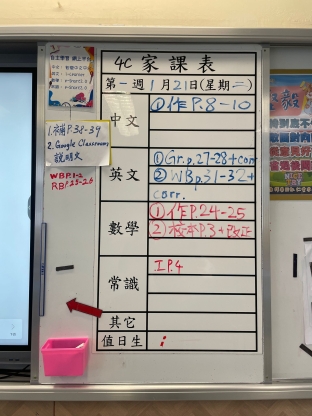 4C 家課表
第一週 1月21日(星期二)
中文
①作P.8-10
英文
①Gr.p.27-28+corr
②WBp.31-32+
corr.
數學
①作P.24-25
②校本P.3+改正
常識
工P.4
其它
值日生
1.補P.38-39
2.Google Classroom
說明文
WBP.1-2
RBP.25-26
自主學習 網上平台